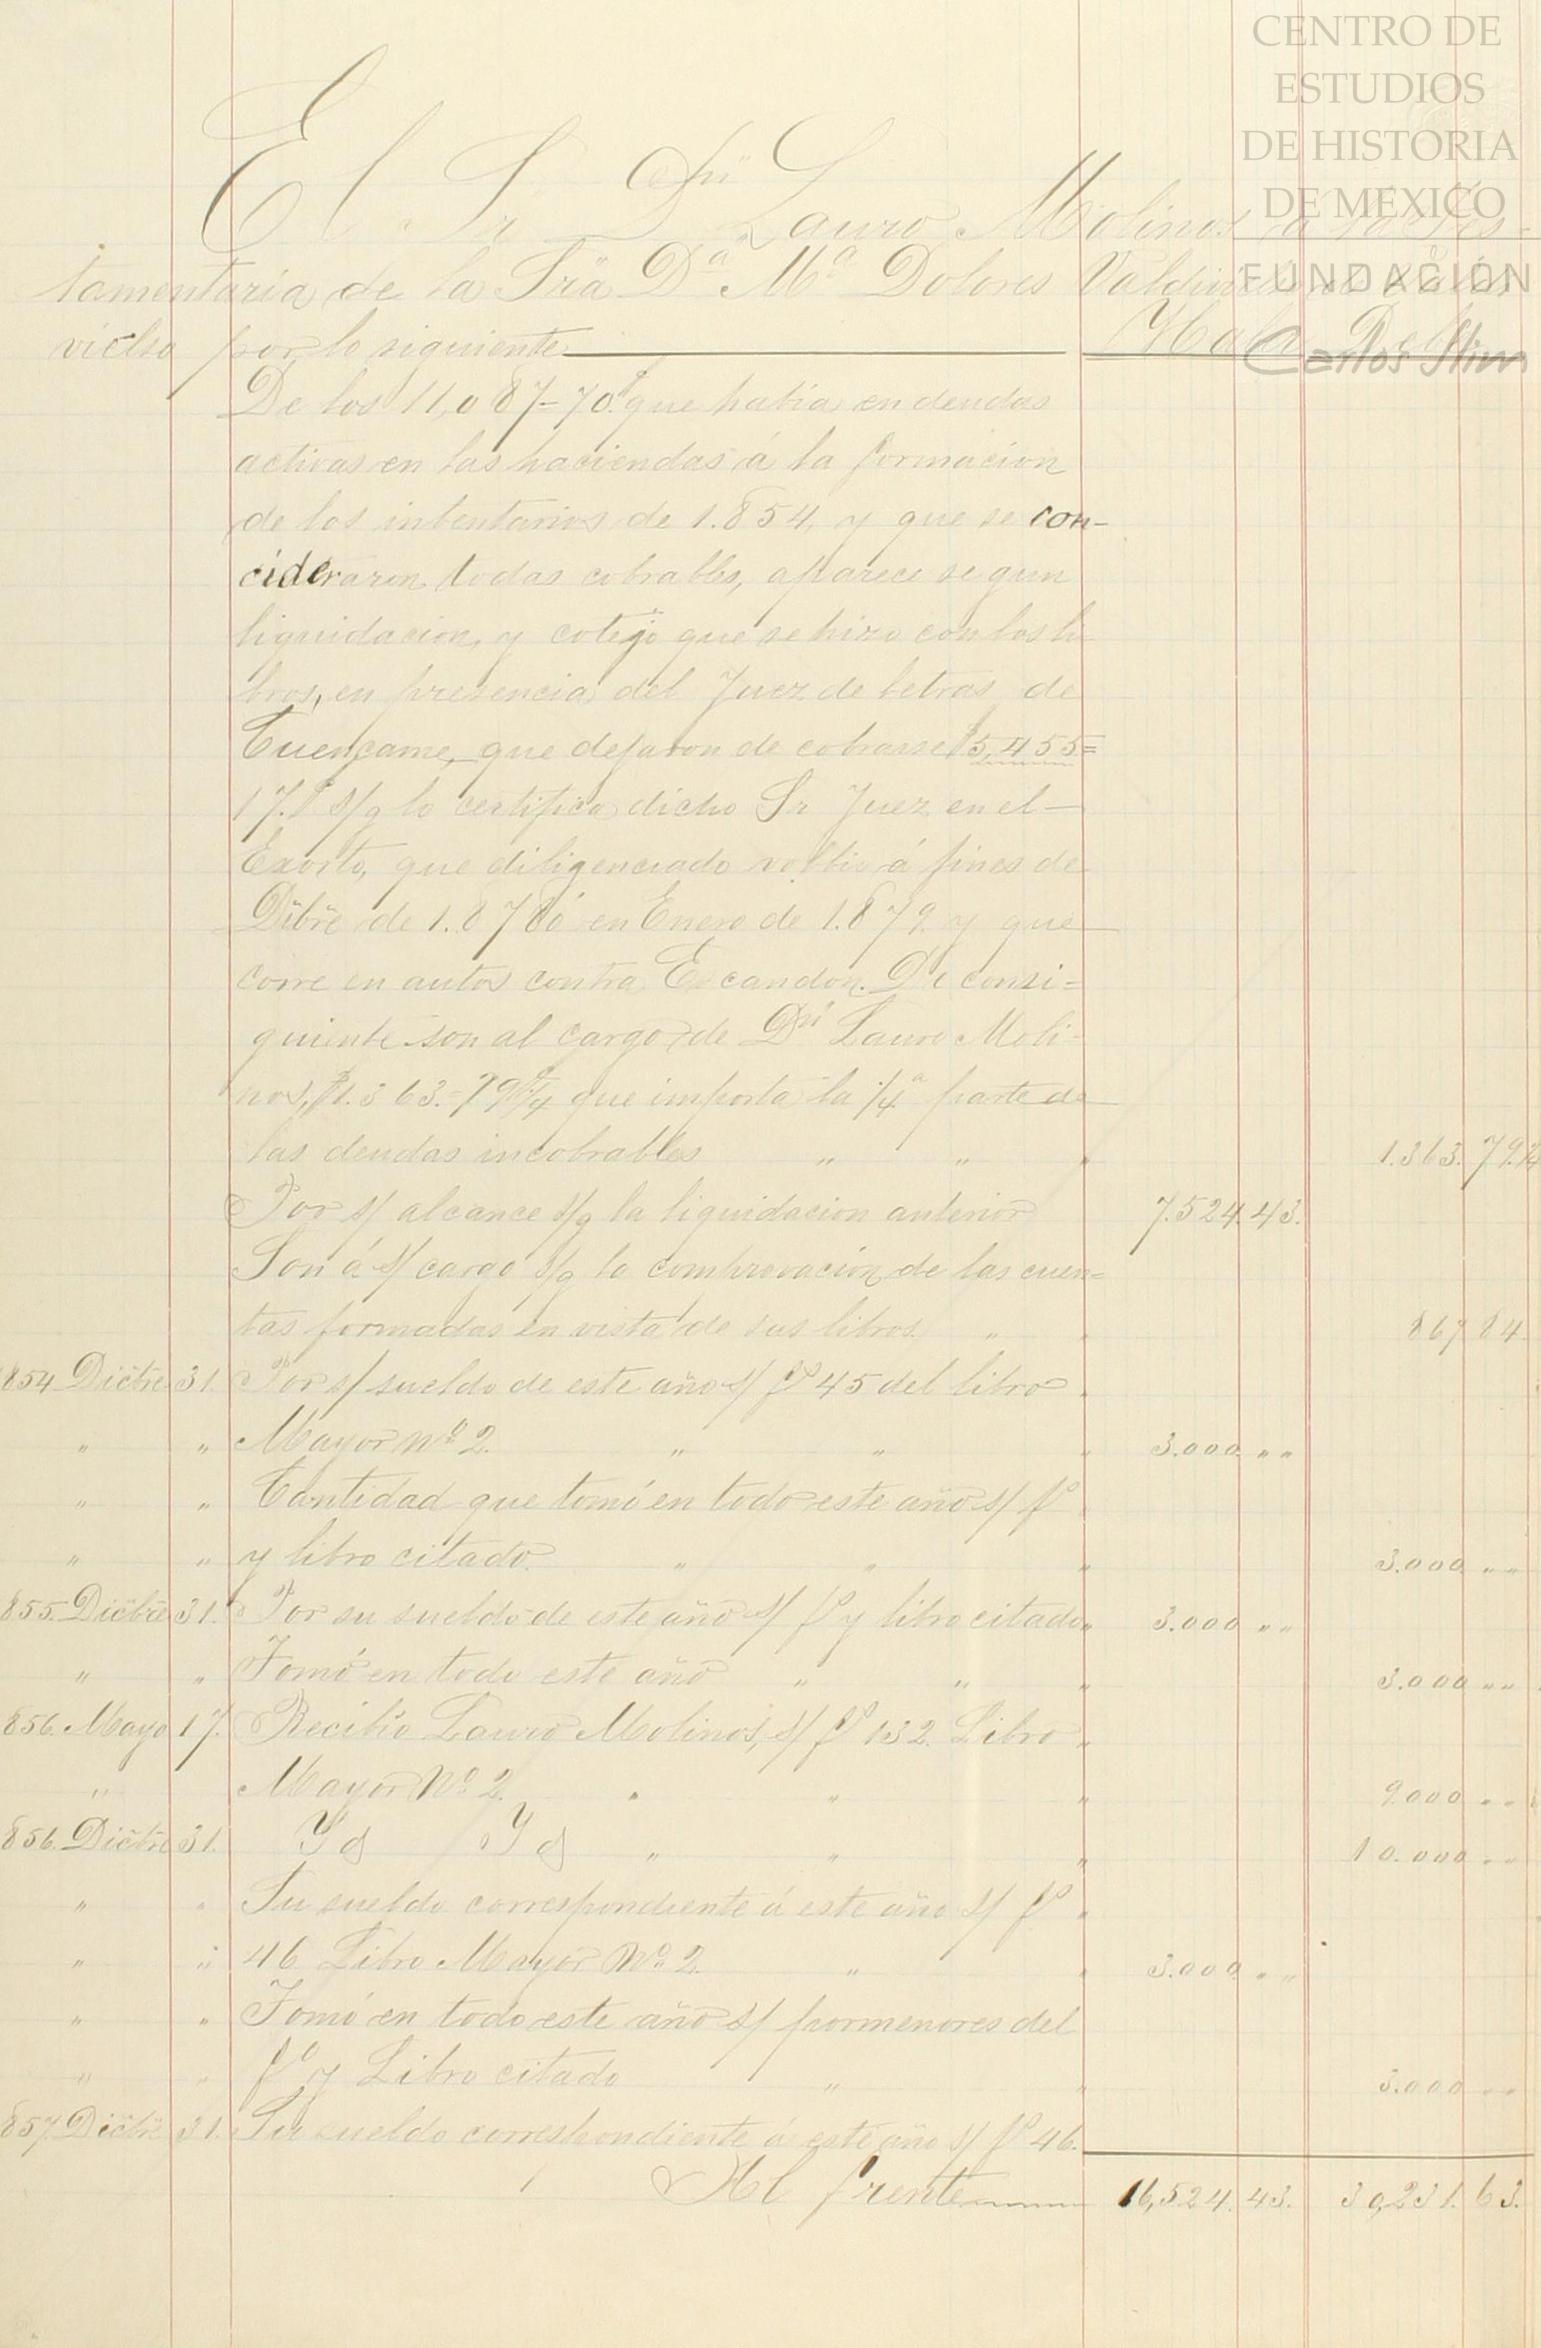 CENTRO DE
ESTUDIOS
DE HISTORIA
DE MEXICO
FUNDACIÓN
Carlos Slim
El Sr Dn Lauro Molinos a la tes-
tamentaria de la Sra Da Ma Dolores
por lo siguiente Haber Debe
De los 11,087=70 que habia en deudas
activas en las haciendas á la formacion
de los inbentarios de 1.854, y que se con-
cideraron todas cobrables, aparece segun
liquidacion, y cotejo que se hizo con los li
bros, en presencia del Juez de letras de
Cuencame, que dejaron de cobrarse $5,455=
17. s/g lo certifica dicho Sr Juez en el
Exorto, que diligenciado volbio á fines de
Dibre de 1.878 ó en Enero de 1.879. y que
corre en autos contra Escandon. De consi=
guiente son al cargo de Dn Lauro Moli-
nos, $1.363.=79 1/4 que importa la 1/4a parte de
las deudas incobrables " " " 1.363. 79.1/4
Por s/ alcance s/g la liquidacion anterior 7.524.43.
Son á s/ cargo s/g la comprovacion de las cuen=
tas formadas en vista de sus libros. " " 867 84
854 Dicbre 31. Por s/ sueldo de este año s/ fo 45 del libro
" " Mayor No 2. " " " 3.000 " "
" " Cantidad que tomó en todo este año s/ fo
" " y libro citado. " " " 3.000 " "
855. Dicbre 31. Por su sueldo de este año s/ fo y libro citado " 3.000 " "
" " Tomó en todo este año " " " 3.000 " "
856. Mayo 17. Recibio Lauro Molinos, s/ fo 132. Libro "
" Mayor No 2. " " " 9.000 " "
856. Dicbre 31. Yd Yd " " " 10.000 " "
" " Su sueldo correspondiente á este año s/ fo "
" " 46 Libro Mayor No 2. " " 3.000 " "
" " Tomó en todo este año s/ pormenores del
" " fo y Libro citado " " 3.000 " "
857 Dicbre 31. Su sueldo correspondiente á este año s/ fo 46.
Al frente 16,524.43. 30,231.63.